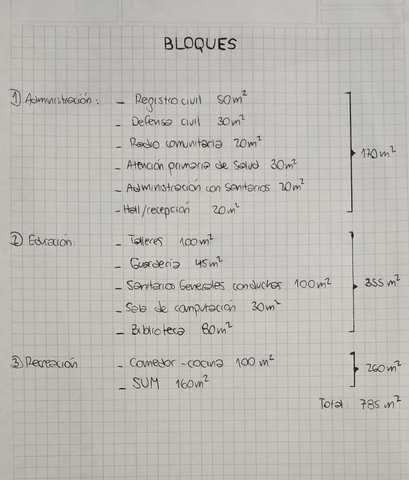 BLOQUES
1) Administración: - Registro civil 50m²
- Defensa civil 30m²
- Radio comunitaria 20m²
- Atención primaria de salud 30m²
- Administración con sanitarios 20m²
- Hall/recepción 20m²
170m²
2) Educación - Talleres 100m²
- Guardería 45m²
- Sanitarios Generales c/duchas 100m²
- Sala de computación 30m²
- Biblioteca 80m²
355m²
3) Recreación - Comedor-cocina 100m²
- SUM 160m²
260m²
Total 785m²